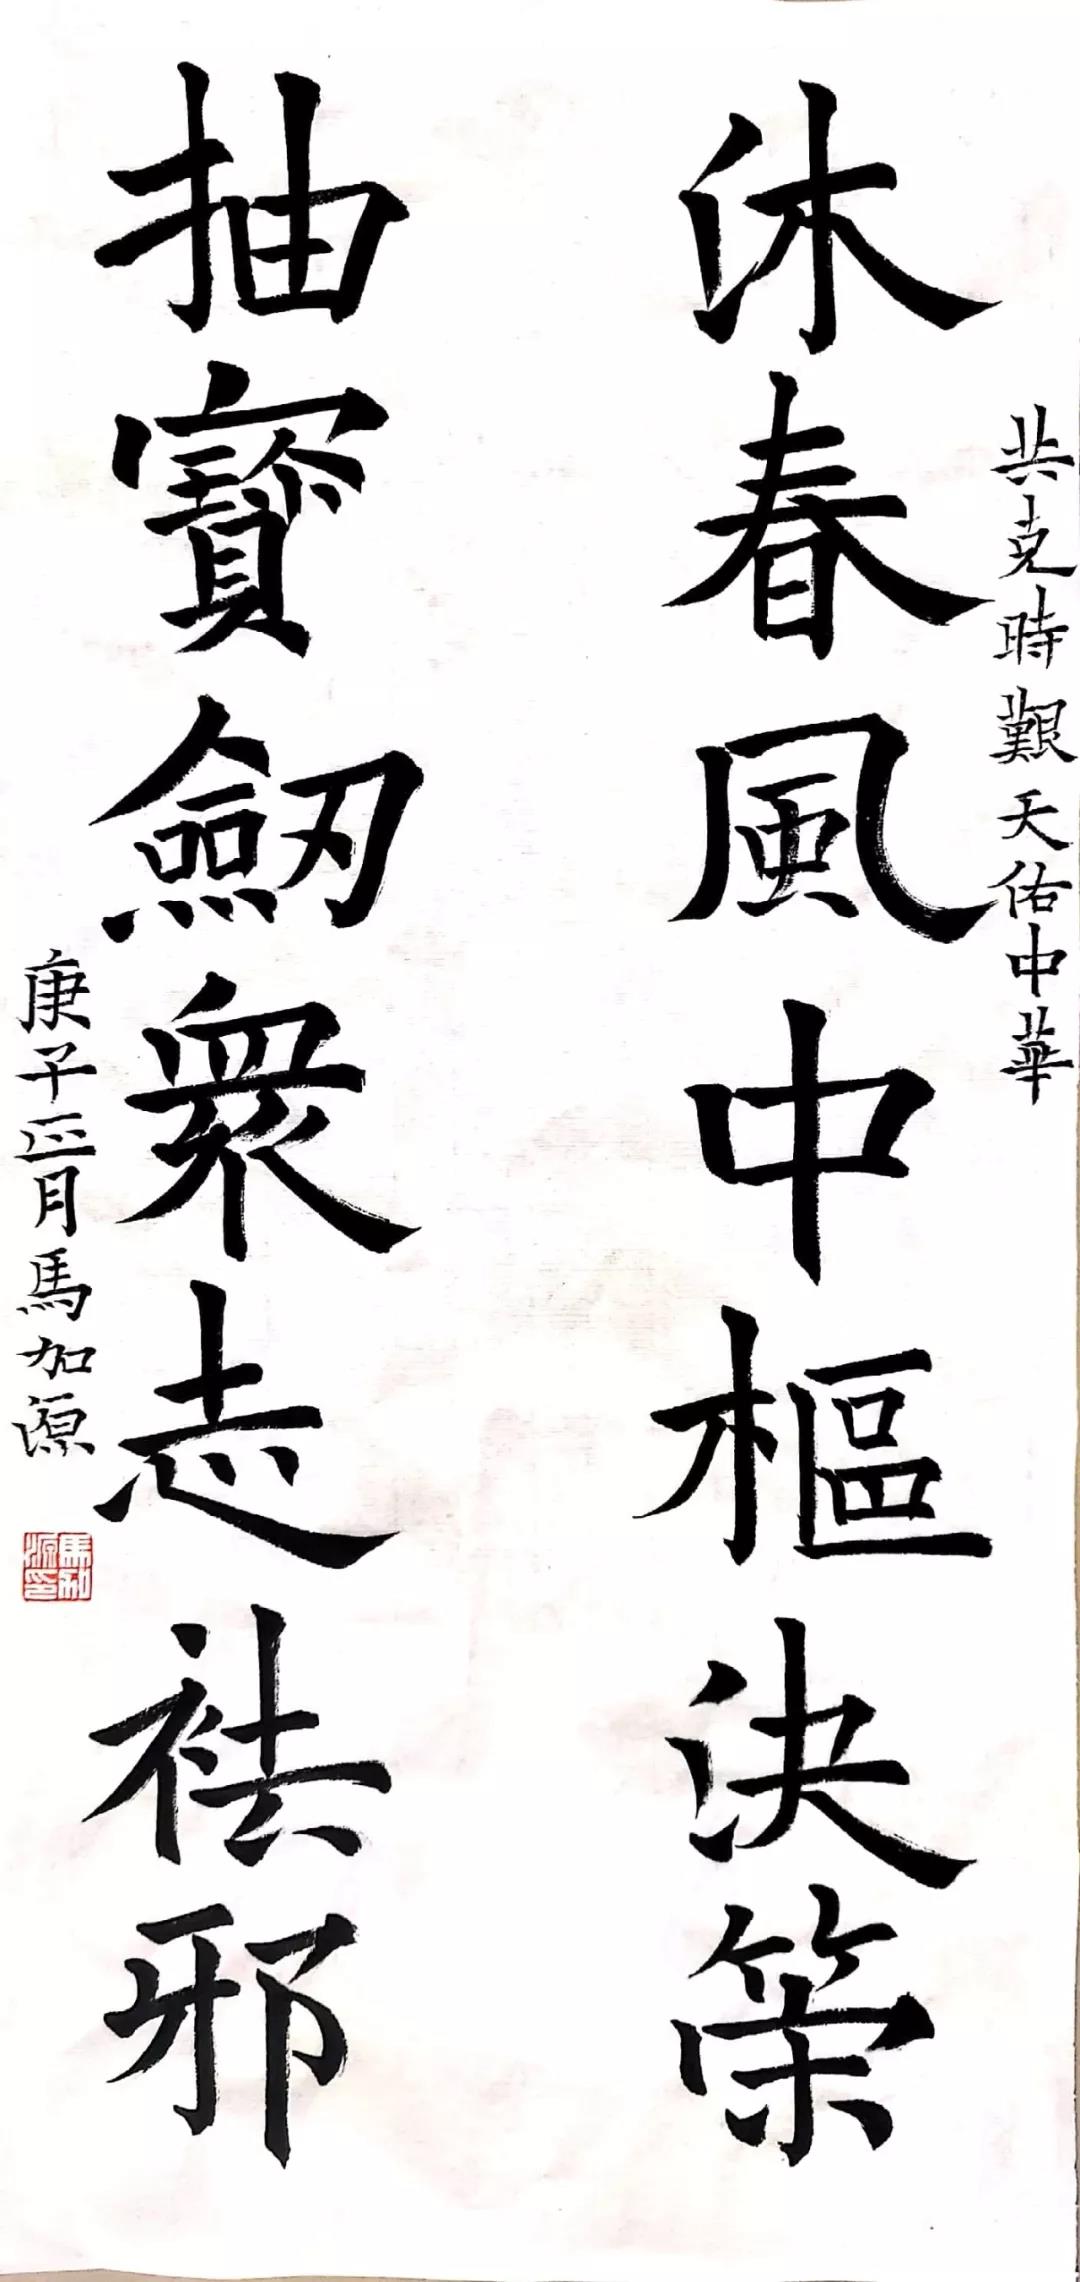 共克時艱天佑中華
沐春風中樞決策
抽寳劒衆志祛邪
庚子正月馬加源
馬加源印